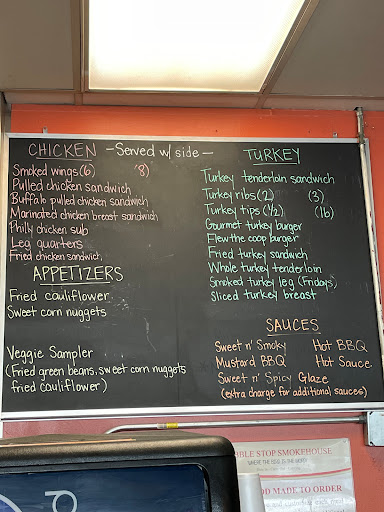 CHICKEN - Served w/ side -
Smoked wings (6) (8)
Pulled chicken sandwich
Buffalo pulled chicken sandwich
Marinated chicken breast sandwich
Philly chicken sub
Leg quarters
Fried chicken sandwich
APPETIZERS
Fried cauliflower
Sweet corn nuggets
Veggie Sampler
(Fried green beans, sweet corn nuggets
fried cauliflower)
TURKEY
Turkey tenderloin sandwich
Turkey ribs (2) (3)
Turkey tips (1/2) (1lb)
Gourmet turkey burger
Flew the coop burger
Fried turkey sandwich
Whole turkey tenderloin
Smoked turkey leg (Fridays)
Sliced turkey breast
SAUCES
Sweet n' Smoky Hot BBQ
Mustard BBQ Hot Sauce
Sweet n' Spicy Glaze
(extra charge for additional sauces)
BLE STOP SMOKEHOUSE
D MADE TO ORDER